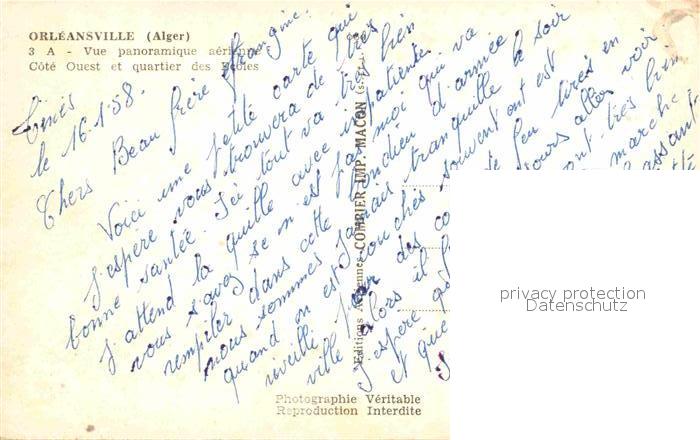 ORLÉANSVILLE (Alger)
3 A - Vue panoramique aérienne
Côté Ouest et quartier des Ecoles
Ténès
le 16.1.58.
Chers Beau frère frangine.
Voici une petite carte qui
j'espère vous trouvera de très
bonne santé. Ici tout va très bien
j'attend la quille avec impatience
vous savez se n'est pas moi qui va
rempiler dans cette d'armée
nous sommes jamais tranquille le soir
quand on est couchés souvent ont est
réveillé par des co de feu tirés en
ville alors il f jours aller voir
J'espère ont très bien
et que marche
passant
Editions Combier Imp. MACON
Photographie Véritable
Reproduction Interdite
privacy protection
Datenschutz